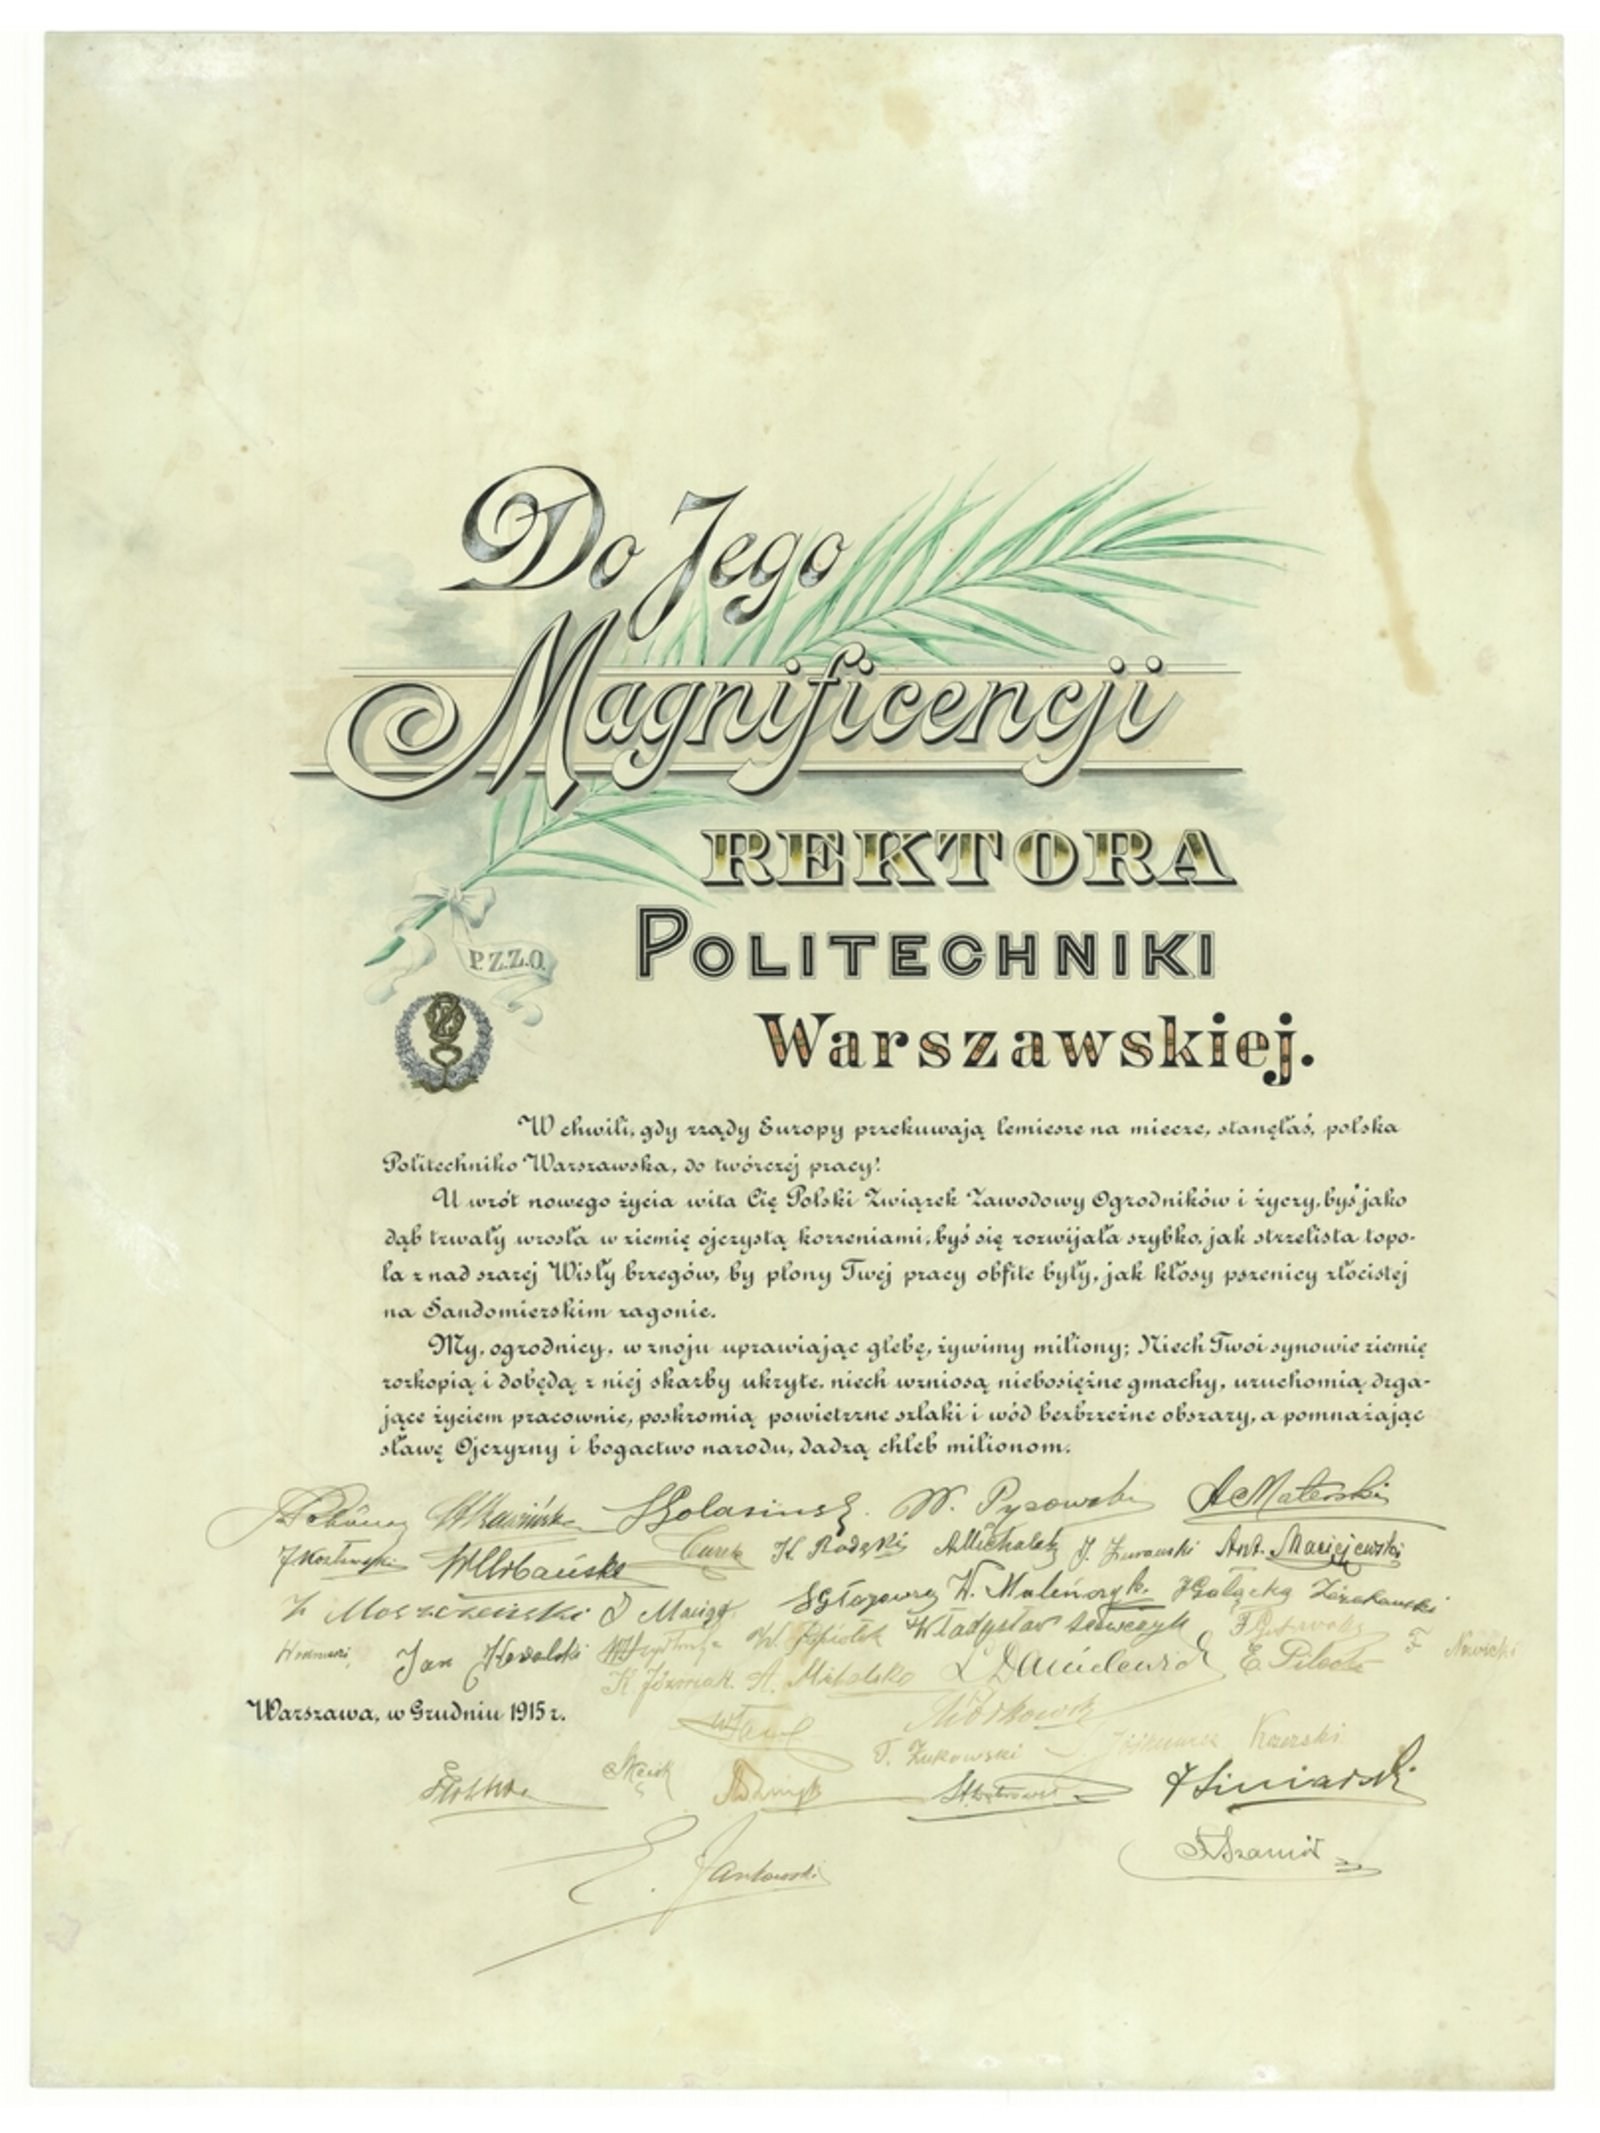 Do Jego
Magnificencji
REKTORA
POLITECHNIKI
P.Z.Z.O.
Warszawskiej.
W chwili, gdy rządy Europy przekuwają lemiesze na miecze, stanęłaś, polska
Politechniko Warszawska, do twórczej pracy!
U wrót nowego życia wita Cię Polski Związek Zawodowy Ogrodników i życzy, byś jako
dąb trwały wrosła w ziemię ojczystą korzeniami, byś się rozwijała szybko, jak strzelista topo-
la z nad szarej Wisły brzegów, by plony Twej pracy obfite były, jak kłosy pszenicy złocistej
na Sandomierskim zagonie.
My, ogrodnicy, w znoju uprawiając glebę, żywimy miliony; Niech Twoi synowie ziemię
rozkopią i dobędą z niej skarby ukryte, niech wzniosą niebosiężne gmachy, uruchomią drga-
jące życiem pracownie, poskromią powietrzne szlaki i wód bezbrzeżne obszary, a pomnażając
sławę Ojczyzny i bogactwo narodu, dadzą chleb milionom.
W. Pysowski A. Materski
Curek K. Rodecki A. Michalak J. Żurawski Ant. Maciejewski
Z. Moszczeński W. Malińczyk J. Gałązka
Jan Kowalski Władysław F. Nowicki
K. Józwiak A. Michalski L. Danielewicz E.
Warszawa, w Grudniu 1915 r.
T. Żukowski Kozerski
J. Siniarski
E. Jankowski